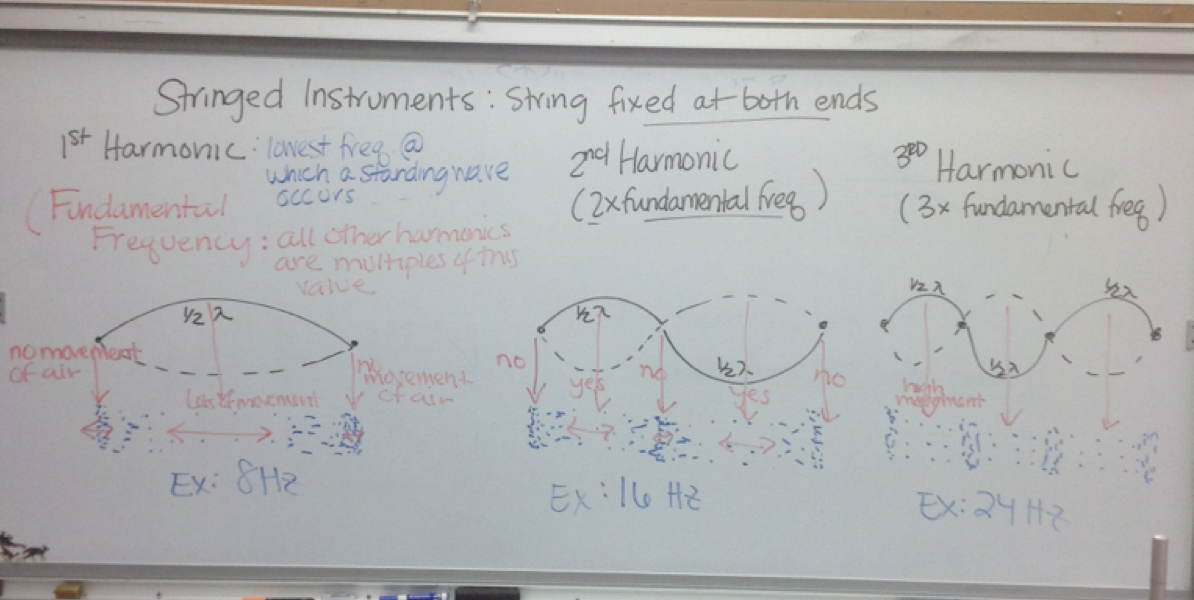 Stringed Instruments: String fixed at both ends
1st Harmonic: lowest freq @
which a standing wave
occurs
(Fundamental
Frequency: all other harmonics
are multiples of this
value.
½ λ
no movement
of air
Lots of movement
no
movement
of air
Ex: 8Hz
2nd Harmonic
(2x fundamental freq)
½ λ
½ λ
no
yes
no
yes
no
Ex: 16 Hz
3RD Harmonic
(3x fundamental freq)
½ λ
½ λ
½ λ
high
Ex: 24 Hz